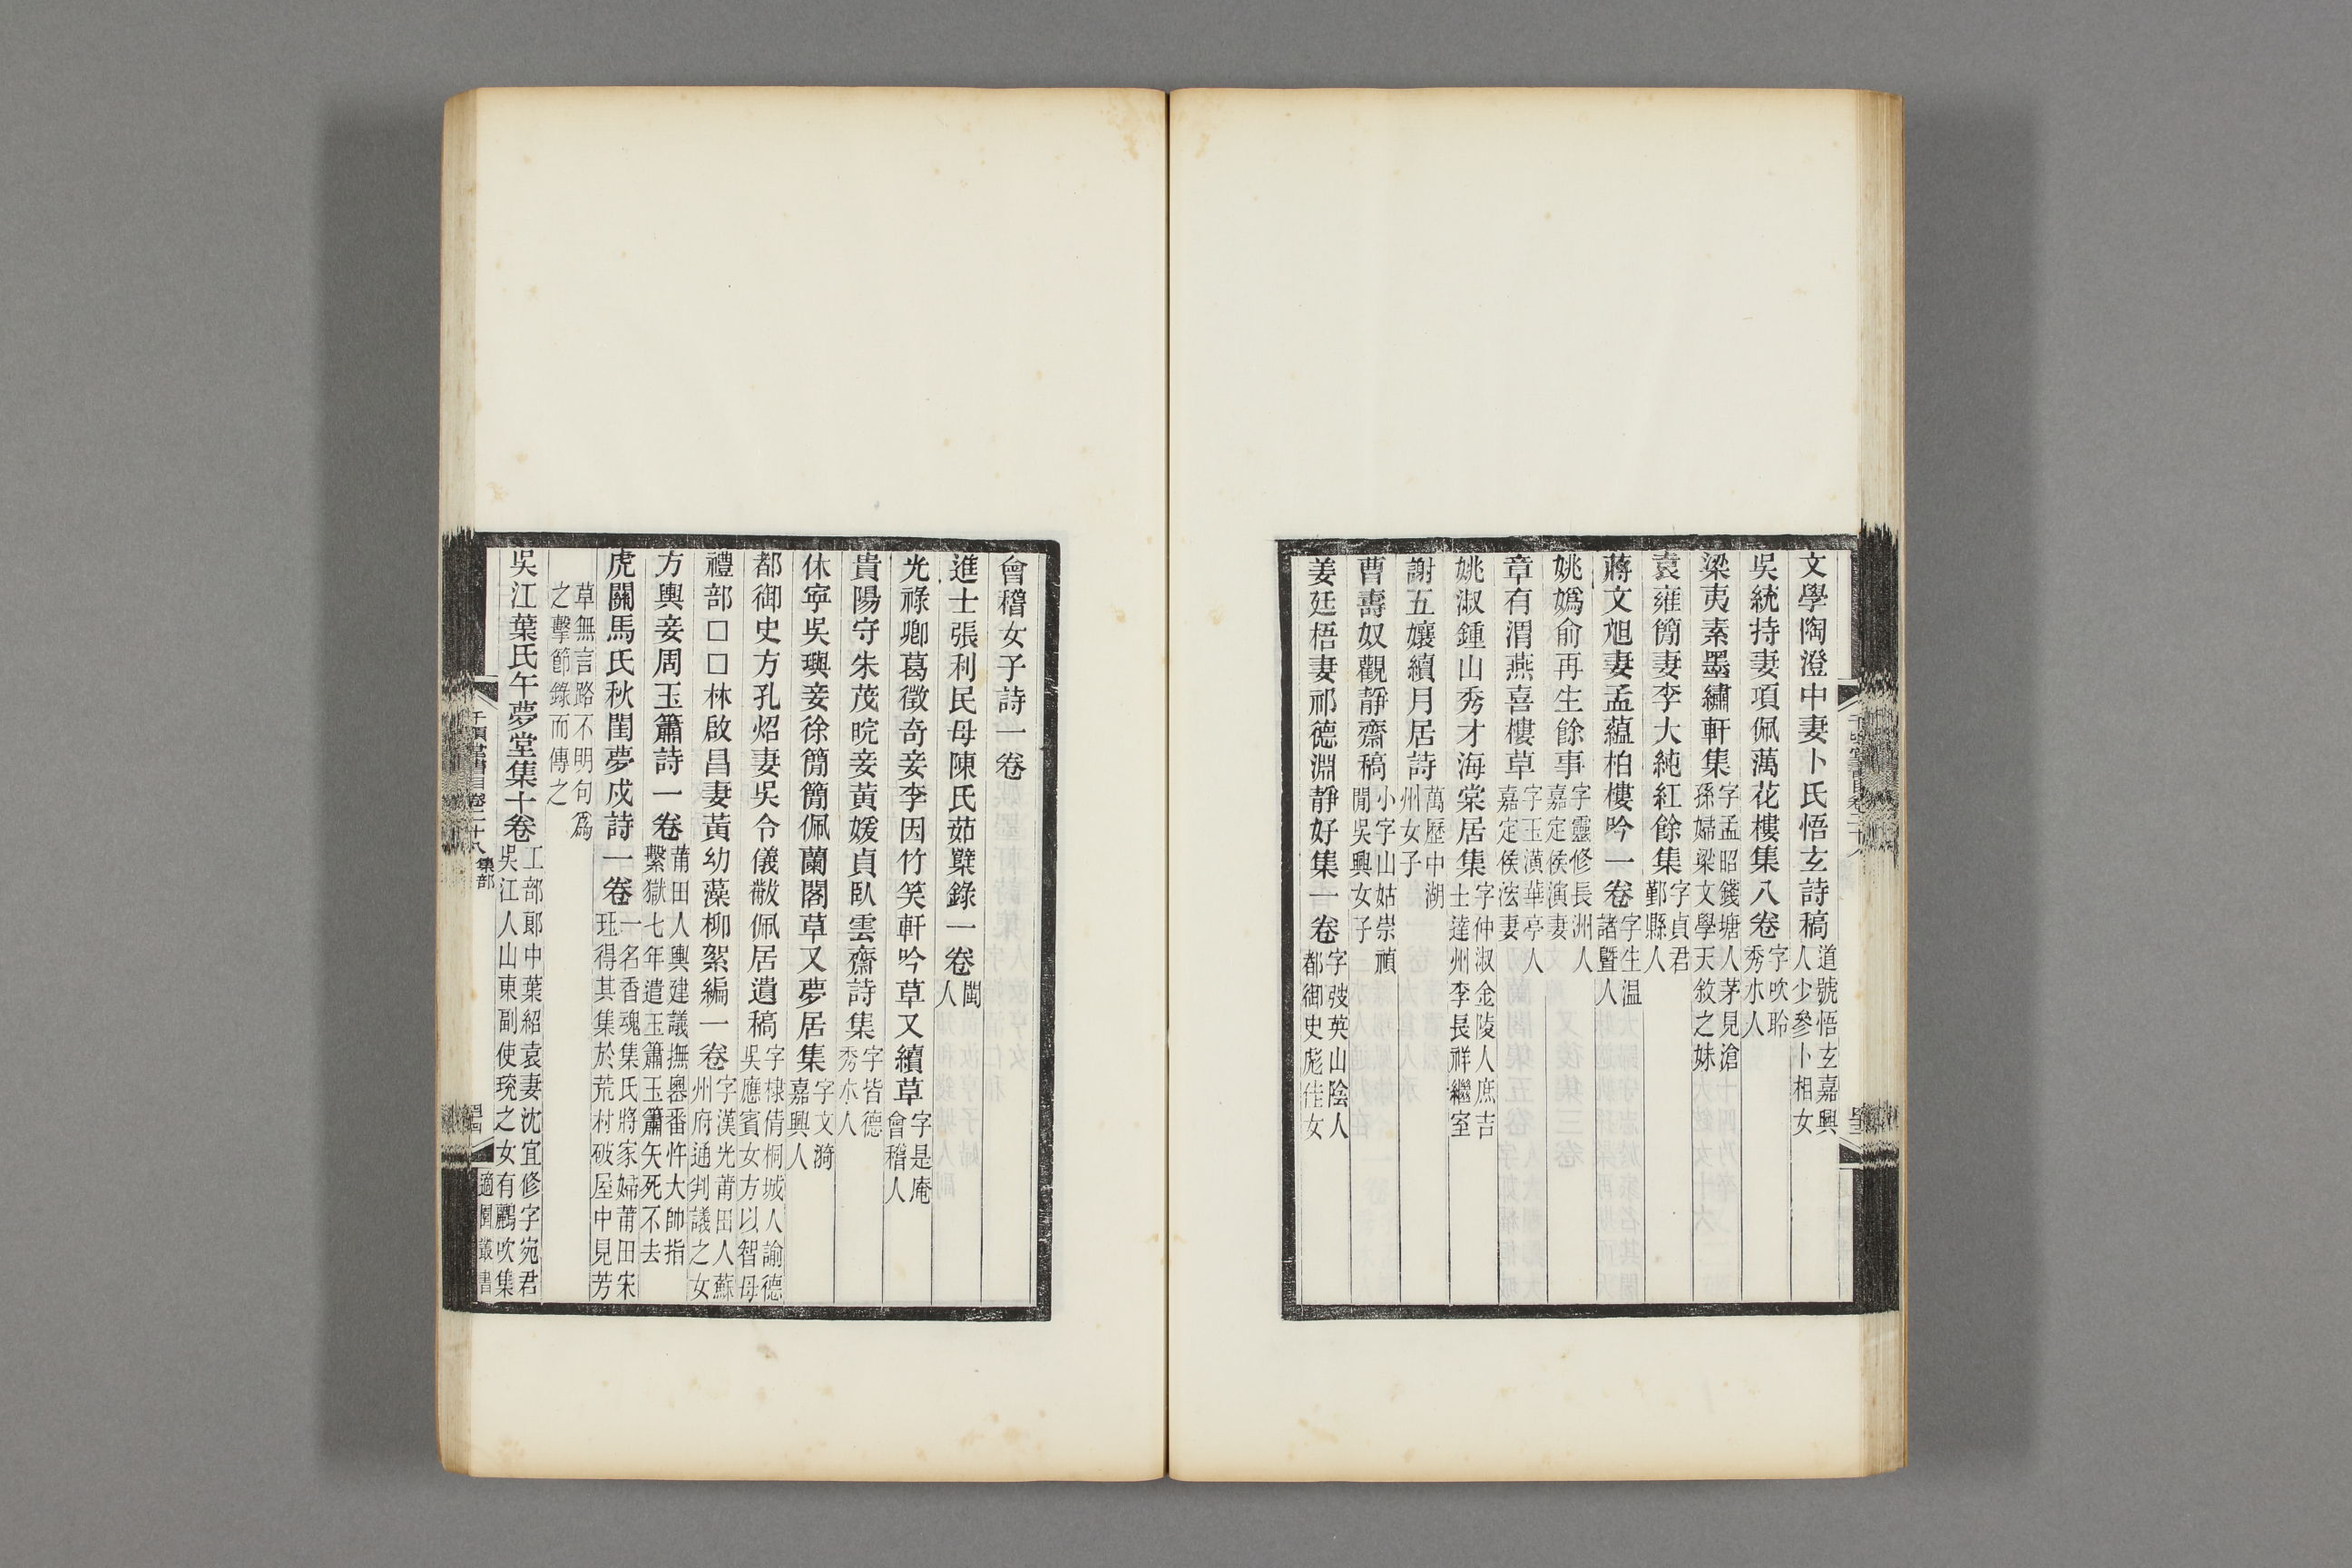 文學陶澄中妻卜氏悟玄詩稿道號悟玄嘉興人少參卜相女
吳統持妻項佩蕅花樓集八卷字吹聆秀水人
梁夷素墨繡軒集字孟昭錢塘人茅見滄孫婦梁文學天敘之妹
袁雍簡妻李大純紅餘集字貞君鄞縣人
蔣文旭妻孟蘊柏樓吟一卷字生温諸暨人
姚嬀俞再生餘事字靈修長洲人嘉定侯演妻
章有渭燕喜樓草字玉潢華亭人嘉定侯泓妻
姚淑鍾山秀才海棠居集字仲淑金陵人庶吉士達州李長祥繼室
謝五孃續月居詩萬歷中湖州女子
曹壽奴觀靜齋稿小字山姑崇禎閒吳興女子
姜廷梧妻祁德淵靜好集一卷字弢英山陰人都御史彪佳女
會稽女子詩一卷
進士張利民母陳氏茹櫱錄一卷閩人
光祿卿葛徵奇妾李因竹笑軒吟草又續草字是庵會稽人
貴陽守朱茂晥妾黃媛貞臥雲齋詩集字皆德秀水人
休寧吳璵妾徐簡簡佩蘭閣草又夢居集字文漪嘉興人
都御史方孔炤妻吳令儀敝佩居遺稿字棣倩桐城人諭德吳應賓女方以智母
禮部□□林啟昌妻黃幼藻柳絮編一卷字漢光莆田人蘇州府通判議之女
方輿妾周玉簫詩一卷莆田人輿建議撫粤番忤大帥指繫獄七年遣玉簫玉簫矢死不去
虎關馬氏秋閨夢戍詩一卷一名香魂集氏將家婦莆田宋珏得其集於荒村破屋中見芳
草無言路不明句爲之擊節錄而傳之
吳江葉氏午夢堂集十卷工部郎中葉紹袁妻沈宜修字宛君吳江人山東副使珫之女有鸝吹集
千頃堂書目卷二十八 集部
適園叢書